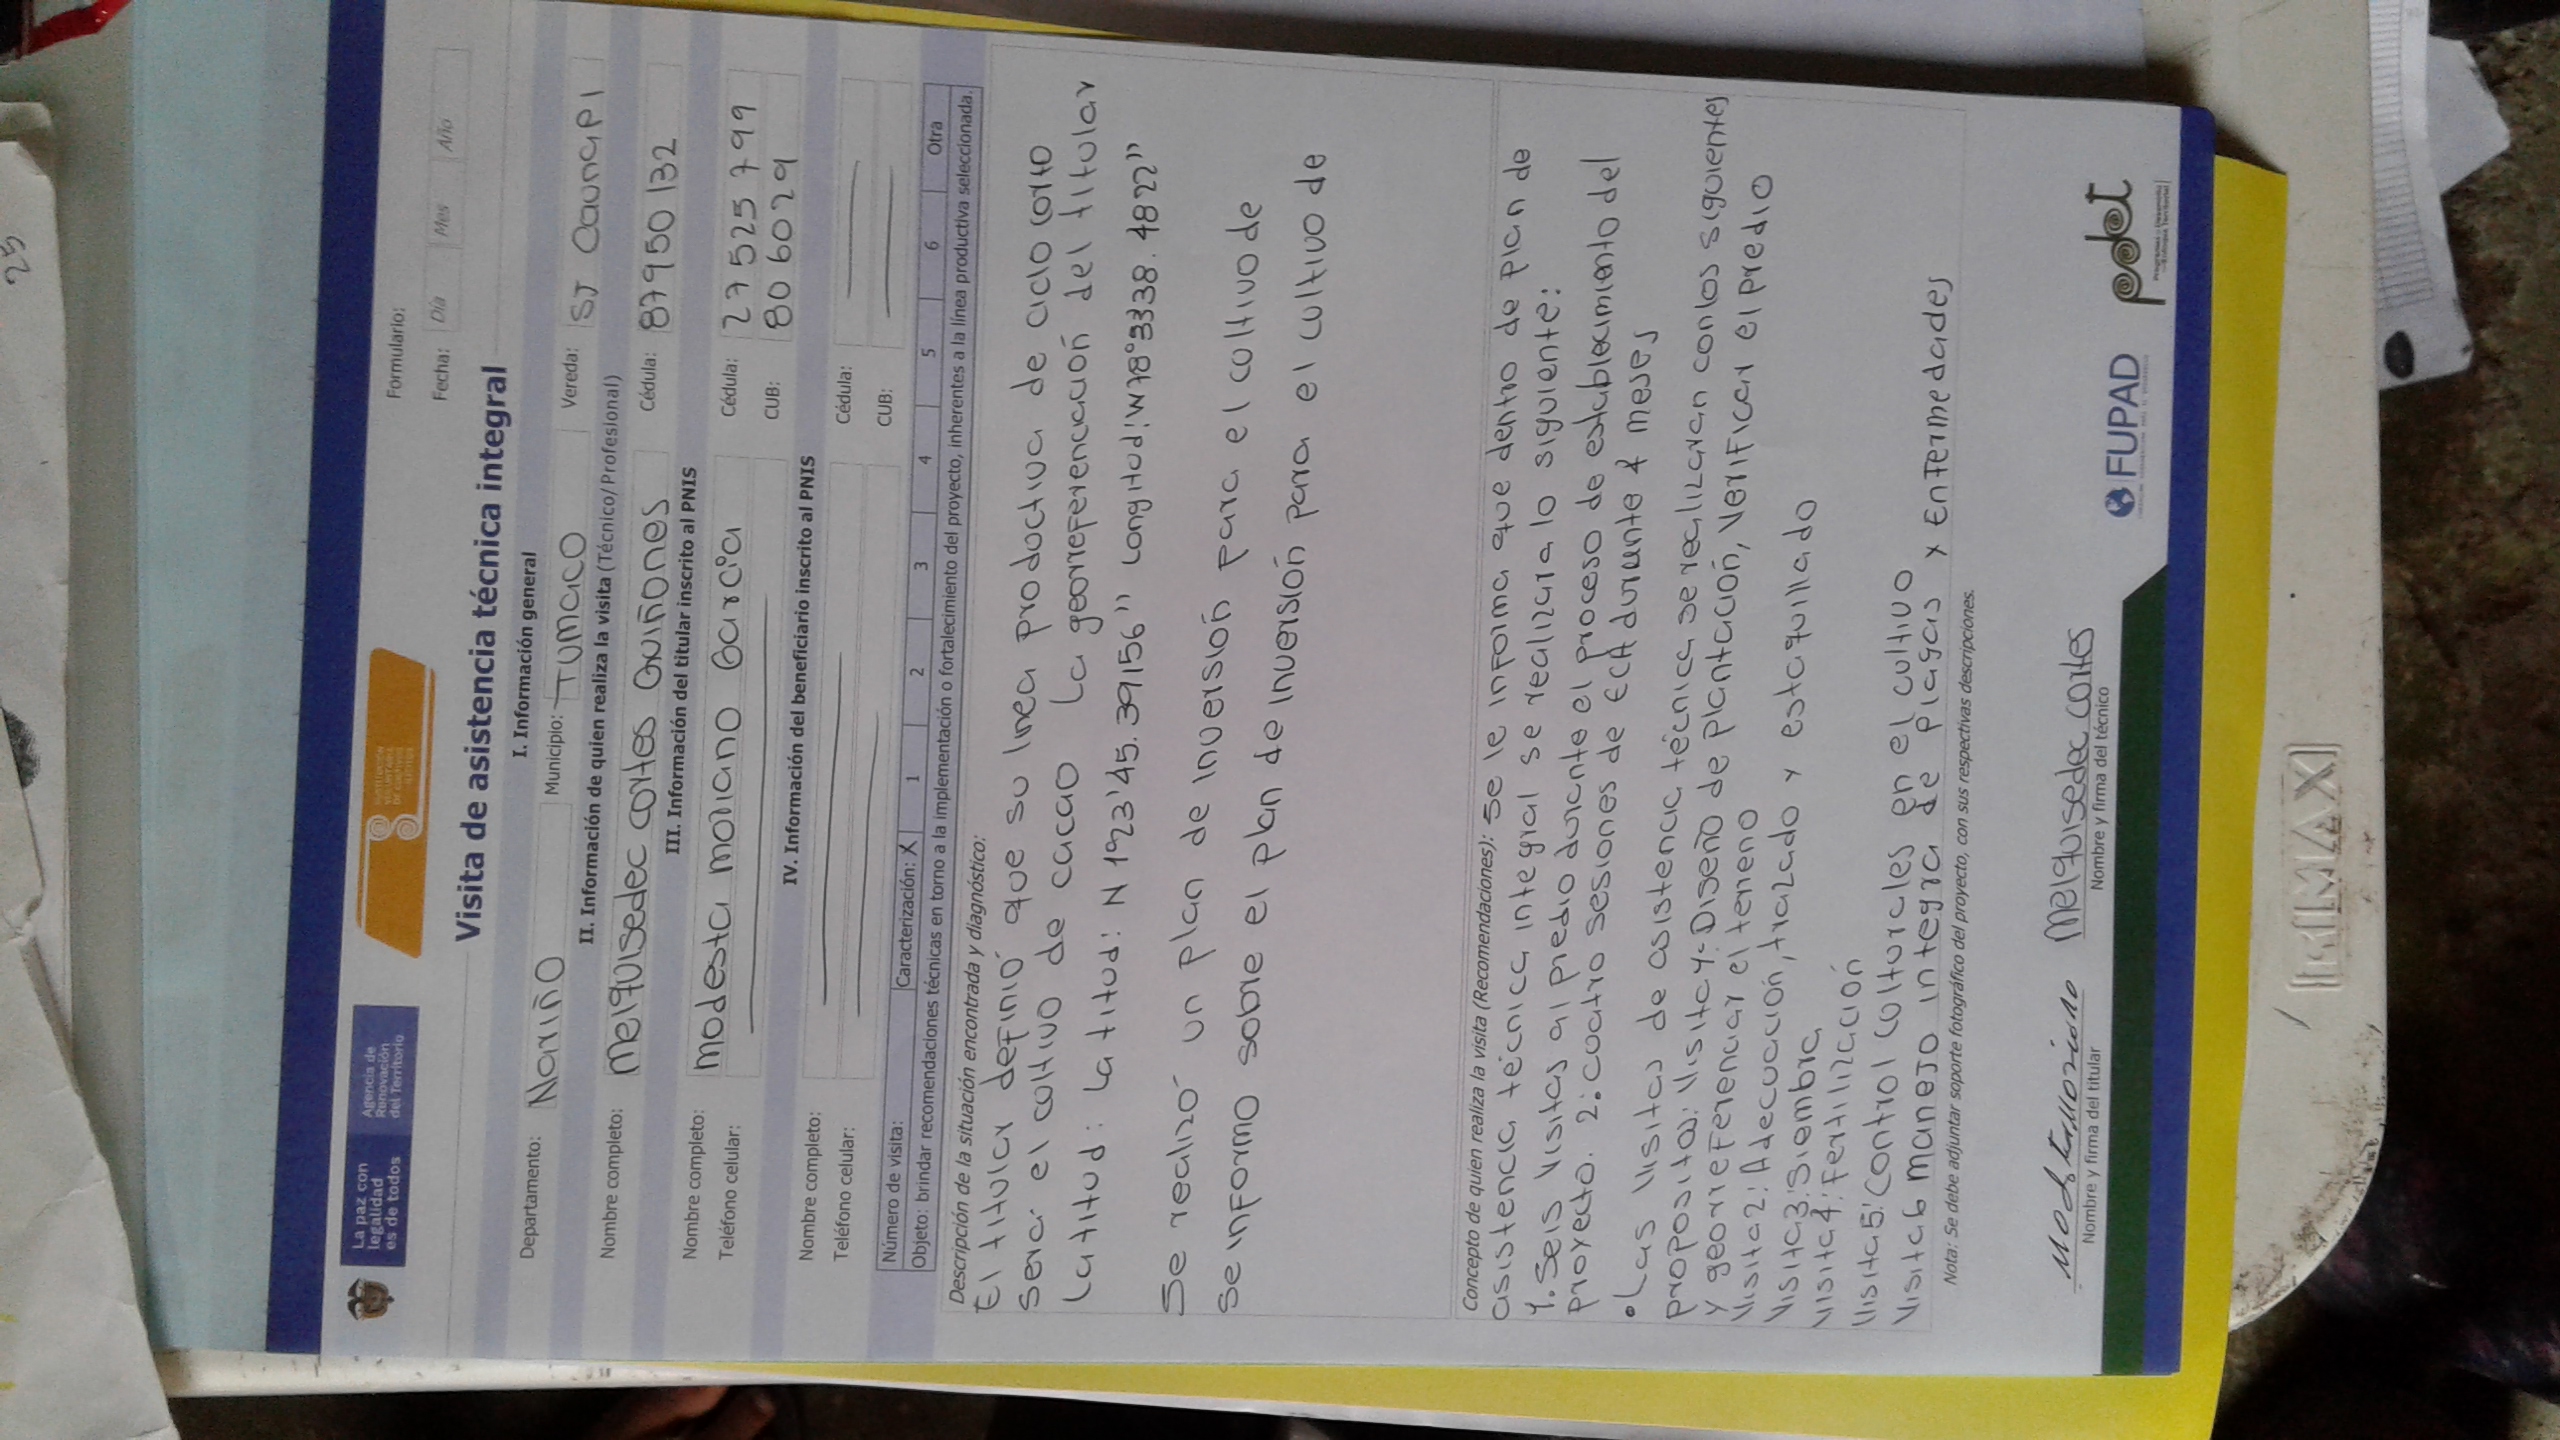 25
La paz con
legalidad
es de todos
Agencia de
Renovación
del Territorio
SUSTITUCIÓN
VOLUNTARIA
DE CULTIVOS
ILÍCITOS
Formulario:
Fecha: Día Mes Año
Visita de asistencia técnica integral
I. Información general
Departamento: Nariño Municipio: Tumaco Vereda: SJ Caunapi
II. Información de quien realiza la visita (Técnico/Profesional)
Nombre completo: Melquisedec cortes Quiñones Cédula: 87950132
III. Información del titular inscrito al PNIS
Nombre completo: Modesta Moriano Garcia Cédula: 27525799
Teléfono celular: CUB: 806029
IV. Información del beneficiario inscrito al PNIS
Nombre completo: Cédula:
Teléfono celular: CUB:
Número de visita: Caracterización: X 1 2 3 4 5 6 Otra
Objeto: brindar recomendaciones técnicas en torno a la implementación o fortalecimiento del proyecto, inherentes a la línea productiva seleccionada.
Descripción de la situación encontrada y diagnóstico:
El titular definió que su linea productiva de ciclo corto
sera el cultivo de cacao La georreferenciación del titular
Latitud: Latitud: N 1°23'45.39156" Longitud: W78°3338.4822"
Se realizó un plan de inversión para el cultivo de
se informo sobre el plan de inversión para el cultivo de
Concepto de quien realiza la visita (Recomendaciones): Se le informa que dentro de plan de
asistencia técnica integral se realizara lo siguiente:
1. Seis visitas al predio durante el proceso de establecimiento del
proyecto. 2: cuatro sesiones de ECA durante 4 meses
• Las visitas de asistencia técnica se realizaran con los siguientes
propositos: Visita 1: Diseño de plantación, verificar el predio
y georreferenciar el terreno
Visita 2: Adecuación, trazado y estaquillado
Visita 3: Siembra
Visita 4: Fertilización
Visita 5: Control culturales en el cultivo
Visita 6 manejo integra de plagas y Enfermedades
Nota: Se debe adjuntar soporte fotográfico del proyecto, con sus respectivas descripciones.
Melquisedec cortes
Nombre y firma del titular Nombre y firma del técnico
FUPAD
pdet
MIMAX